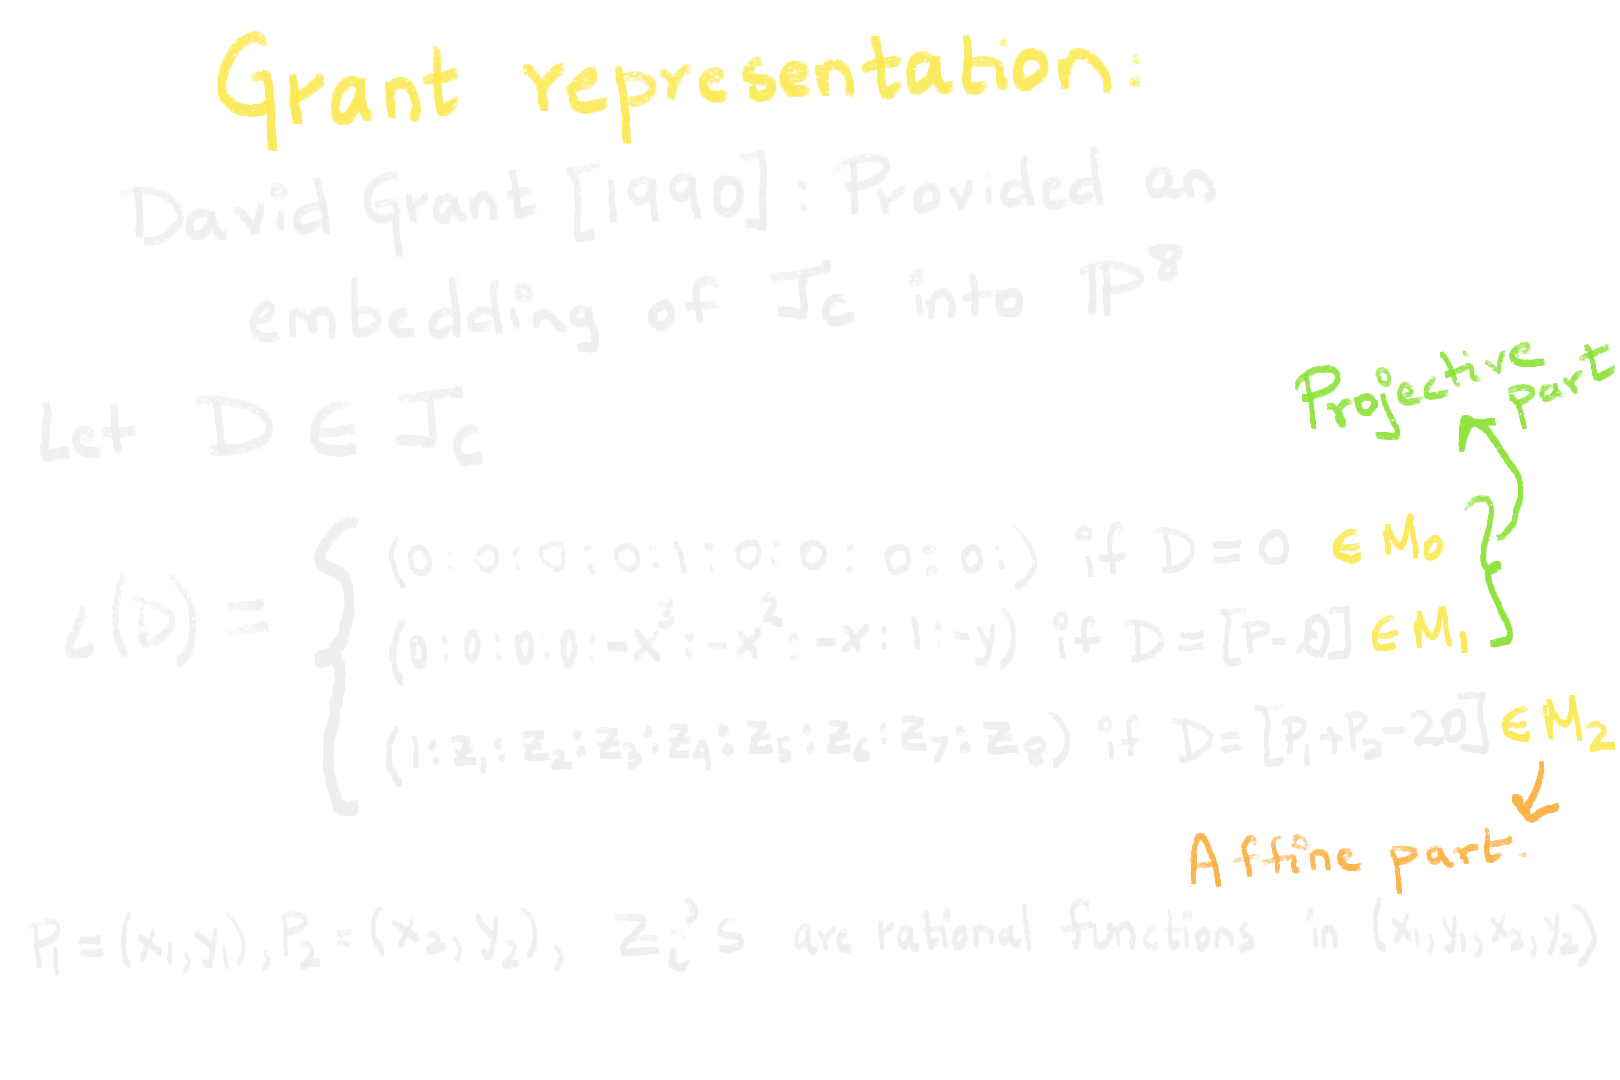 Grant representation:
David Grant [1990] : Provided an
embedding of J_C into ℙ^8
Projective part
Let D ∈ J_C
L(D) = {
(0:0:0:0:1:0:0:0:0:) if D = 0 ∈ M_0
(0:0:0:0:-x^3:-x^2:-x:1:-y) if D = [P-0] ∈ M_1
(1:z_1:z_2:z_3:z_4:z_5:z_6:z_7:z_8) if D = [P_1+P_2-20] ∈ M_2
Affine part.
P_1 = (x_1,y_1), P_2 = (x_2, y_2), Z_i's are rational functions in (x_1,y_1,x_2,y_2)